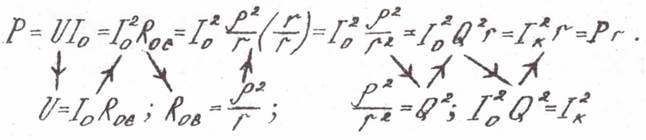 P = UI₀ = I₀²Rое = I₀² ρ²/r (r/r) = I₀² ρ²/r² = I₀²Q²r = Iк²r = Pr.
U = I₀Rов; Rов = ρ²/r; ρ²/r² = Q²; I₀²Q² = Iк²